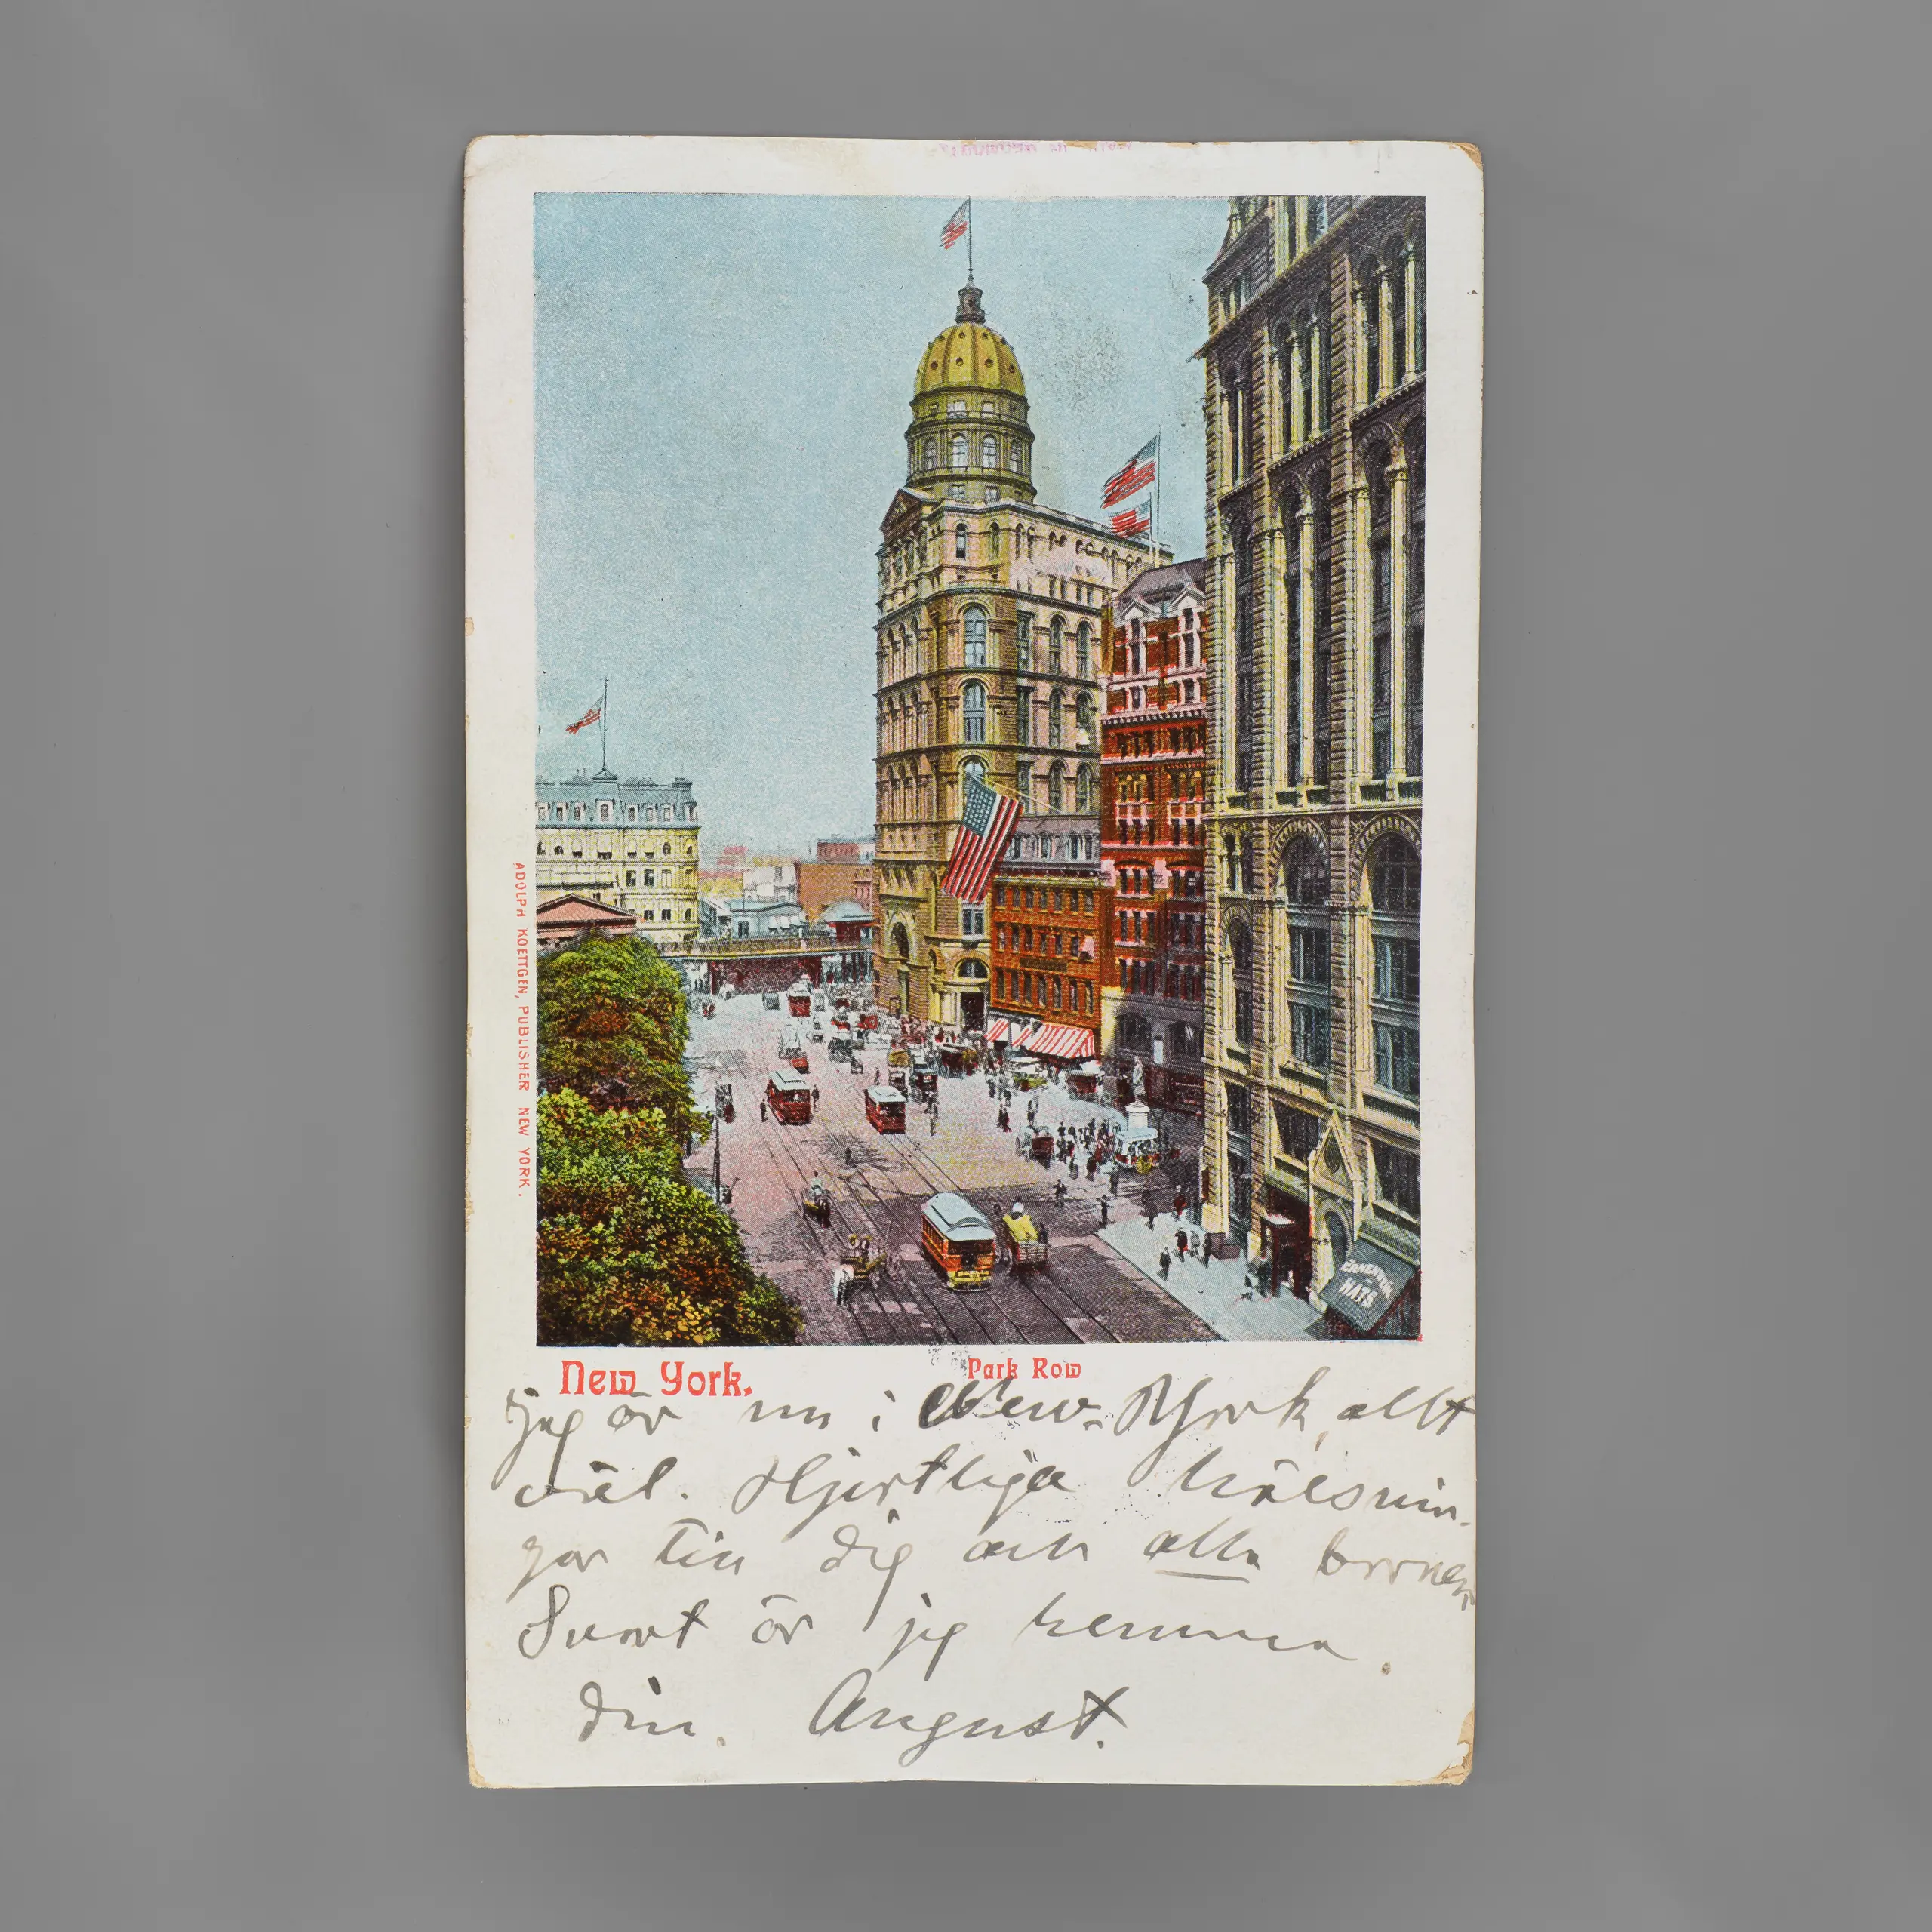 ADOLPH KOETTGEN, PUBLISHER NEW YORK.
HATS
New York. Park Row
jag är nu i New-York, allt
väl. Hjertliga hälsnin-
gar till dig och alla barnen
Snart är jag hemma.
din. August.